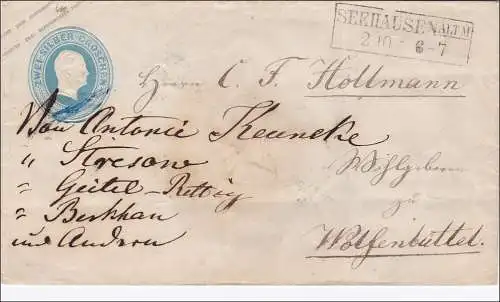 ZWEI SILBER GROSCHEN
SEEHAUSEN ALTM
2 10 6-7
Herrn C. F. Hollmann
Von Antonie Keuneke
" Stresow
" Geitel-Rettig
" Berkhan
und Andern
Wohlgeboren
zu
Wolfenbüttel.